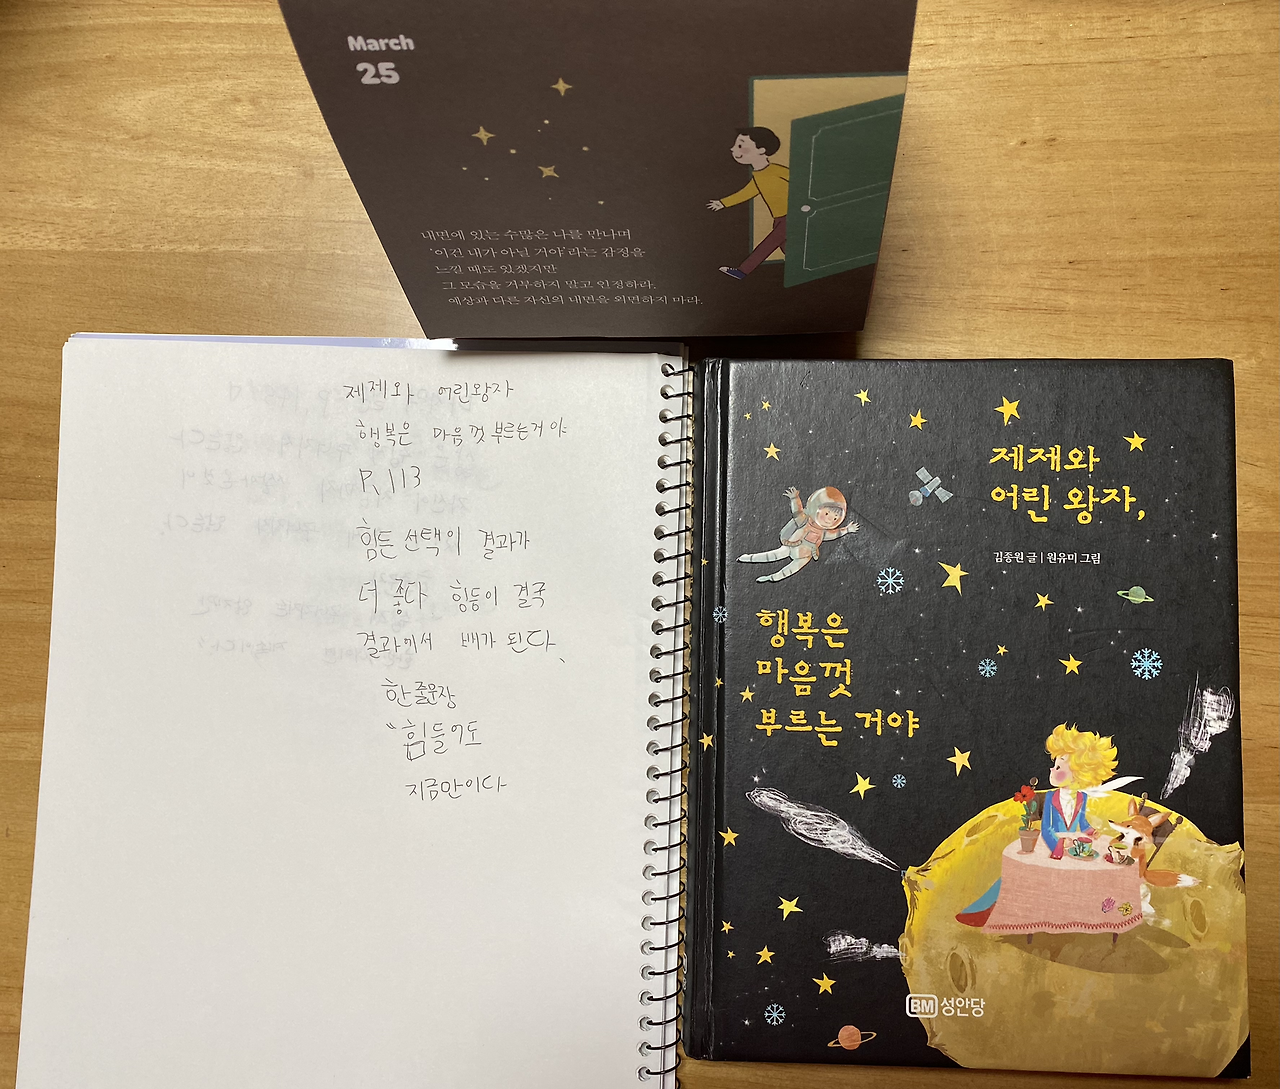 March
25
내면에 있는 수많은 나를 만나며
'이건 내가 아닐 거야'라는 감정을
느낄 때도 있겠지만
그 모습을 거부하지 말고 인정하라.
예상과 다른 자신의 내면을 외면하지 마라.
제제와 어린왕자
행복은 마음껏 부르는거야
P. 113
힘든 선택이 결과가
더 좋다 힘듬이 결국
결과에서 배가 된다.
한줄문장
"힘들어도
지금만이다
제제와
어린 왕자,
김종원 글 | 원유미 그림
행복은
마음껏
부르는 거야
BM 성안당